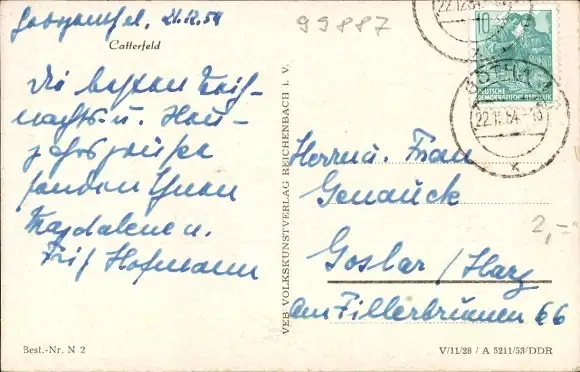 21.12.54
99887
22.12.
10
DEUTSCHE
DEMOKRATISCHE REPUBLIK
22.12.54-18
Catterfeld
Die besten Weih-
nachts- u. Neu-
jahrsgrüße
senden Ihnen
Magdalene u.
Fritz Hofmann
VEB VOLKSKUNSTVERLAG REICHENBACH I. V.
Herrn u. Frau
Genauck
2,-
Goslar / Harz
Am Fillerbrunnen 66
Best.-Nr. N 2
V/11/28 / A 5211/53/DDR